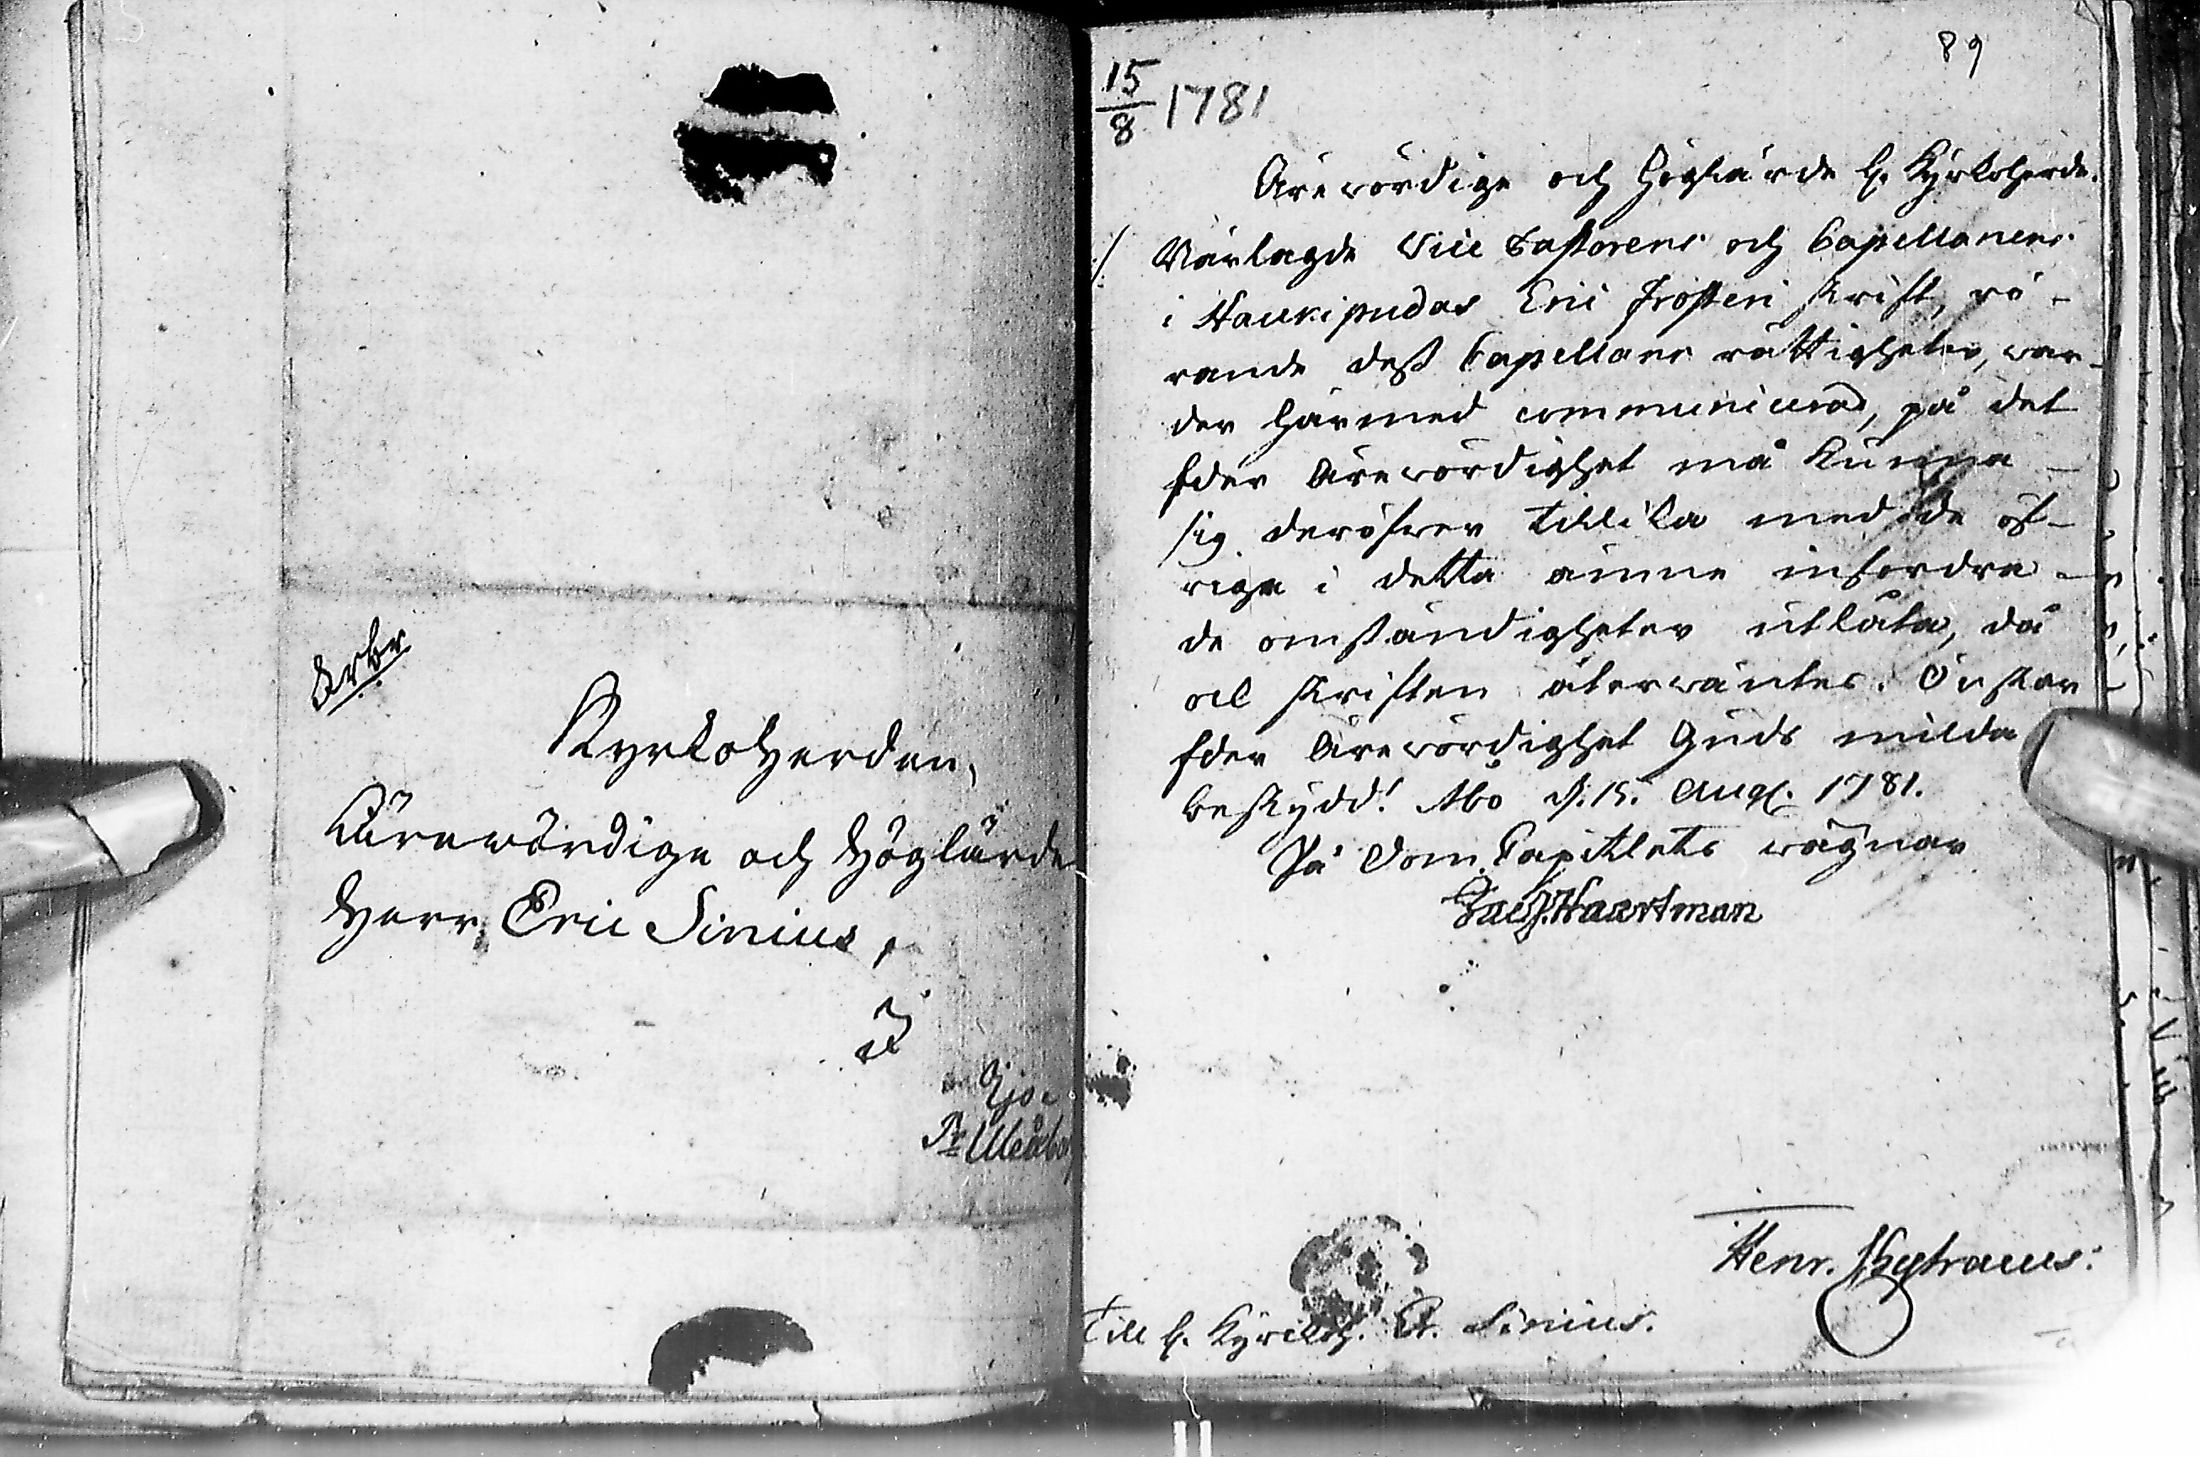 Kyrkoherden,
Ärewördige och Höglärde
Herr Eric Sinius,
Ijo
Pr Uleåbo
89
15/8 1781
Ärewördige och Höglärde H. Kyrkoherde.
Närlagde Vice Pastorens och Capellanens
i Haukipudas Eric Frosteri skrift, rö-
rande dess Capellans rättigheter, war-
der härmed communicerad, på det
Eder Ärewördighet må kunna
sig deröfwer tillika med de öf-
rige i detta ämne infordra-
de omständigheter utlåta, då
ock skriften återwäntes. Önskar
Eder Ärewördighet Guds milda
beskydd! Åbo d. 15. Aug. 1781.
På Dom Capitlets wägnar
Jac. Haartman
Henr.
Till H. Kyrckoh. Er. Sinius.